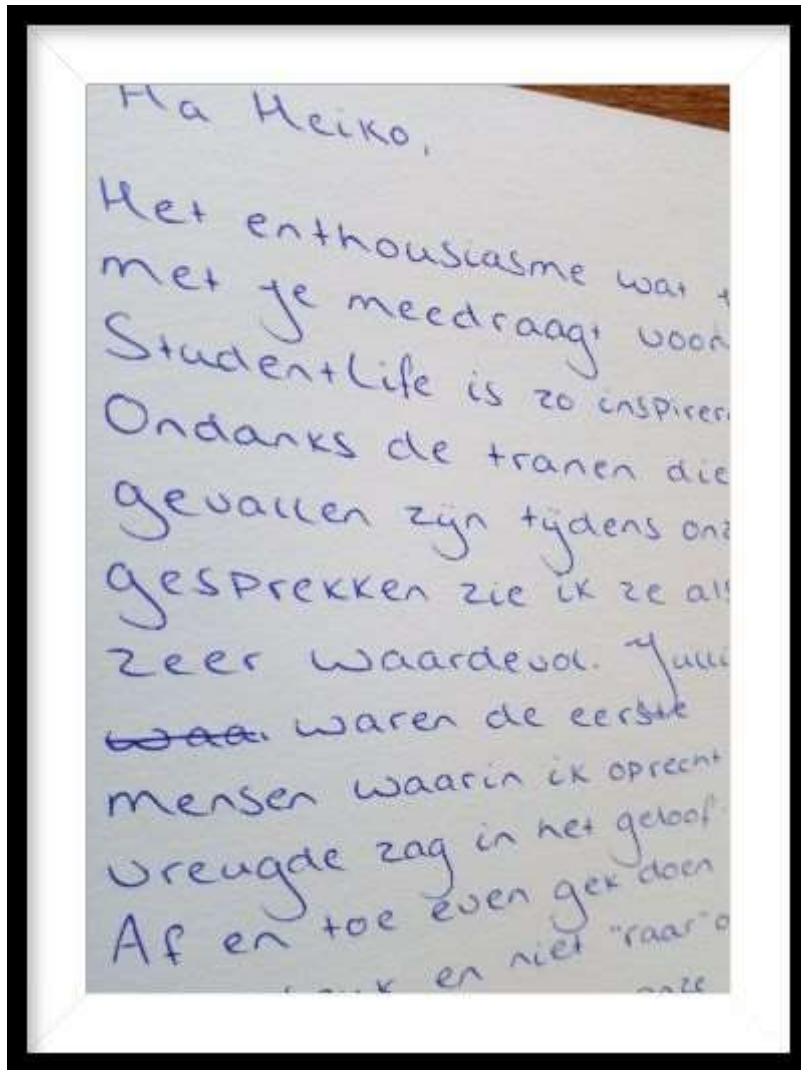 Ha Heiko,
Het enthousiasme wat
met je meedraagt voor
StudentLife is zo inspirer
Ondanks de tranen die
gevallen zijn tijdens onz
gesprekken zie ik ze als
zeer waardevol. Julli
waa. waren de eerste
mensen waarin ik oprecht
vreugde zag in het geloof.
Af en toe even gek doen
en niet "raar" o
onze